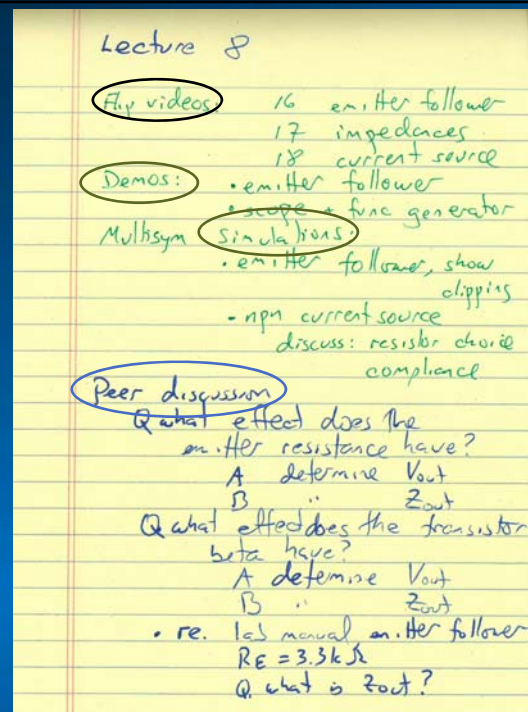 Lecture 8
Flip videos: 16 emitter follower
17 impedances
18 current source
Demos: • emitter follower
• scope + func generator
Multisym Simulations:
• emitter follower, show
clipping
- npn current source
discuss: resistor choice
compliance
Peer discussion
Q what effect does the
emitter resistance have?
A determine Vout
B " Zout
Q what effect does the transistor
beta have?
A determine Vout
B " Zout
• re. lab manual emitter follower
RE = 3.3k Ω
Q. what is Zout?